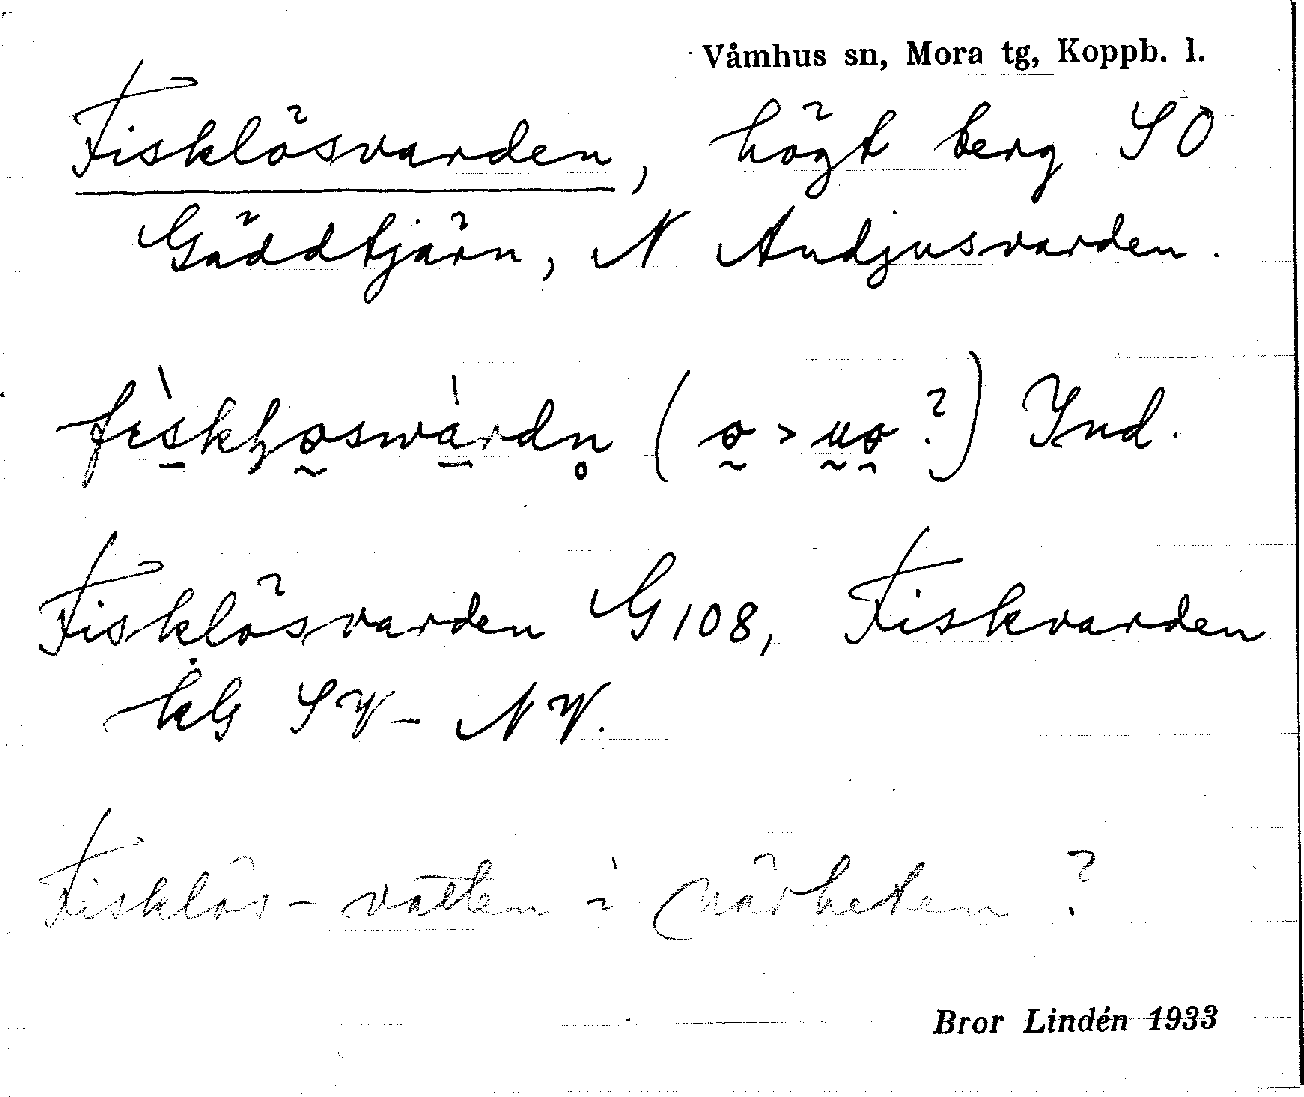 Våmhus sn, Mora tg, Koppb. l.
Fisklösvarden, högt berg SO
Gäddtjärn, N Andjusvarden.
fìskꞎo̰swàrdn̥ (o̰ > ṵo̰ ?) Ind.
Fisklösvarden G108, Fiskvarden
kG SV-NV.
Fisklös-vatten i närheten?
Bror Lindén 1933